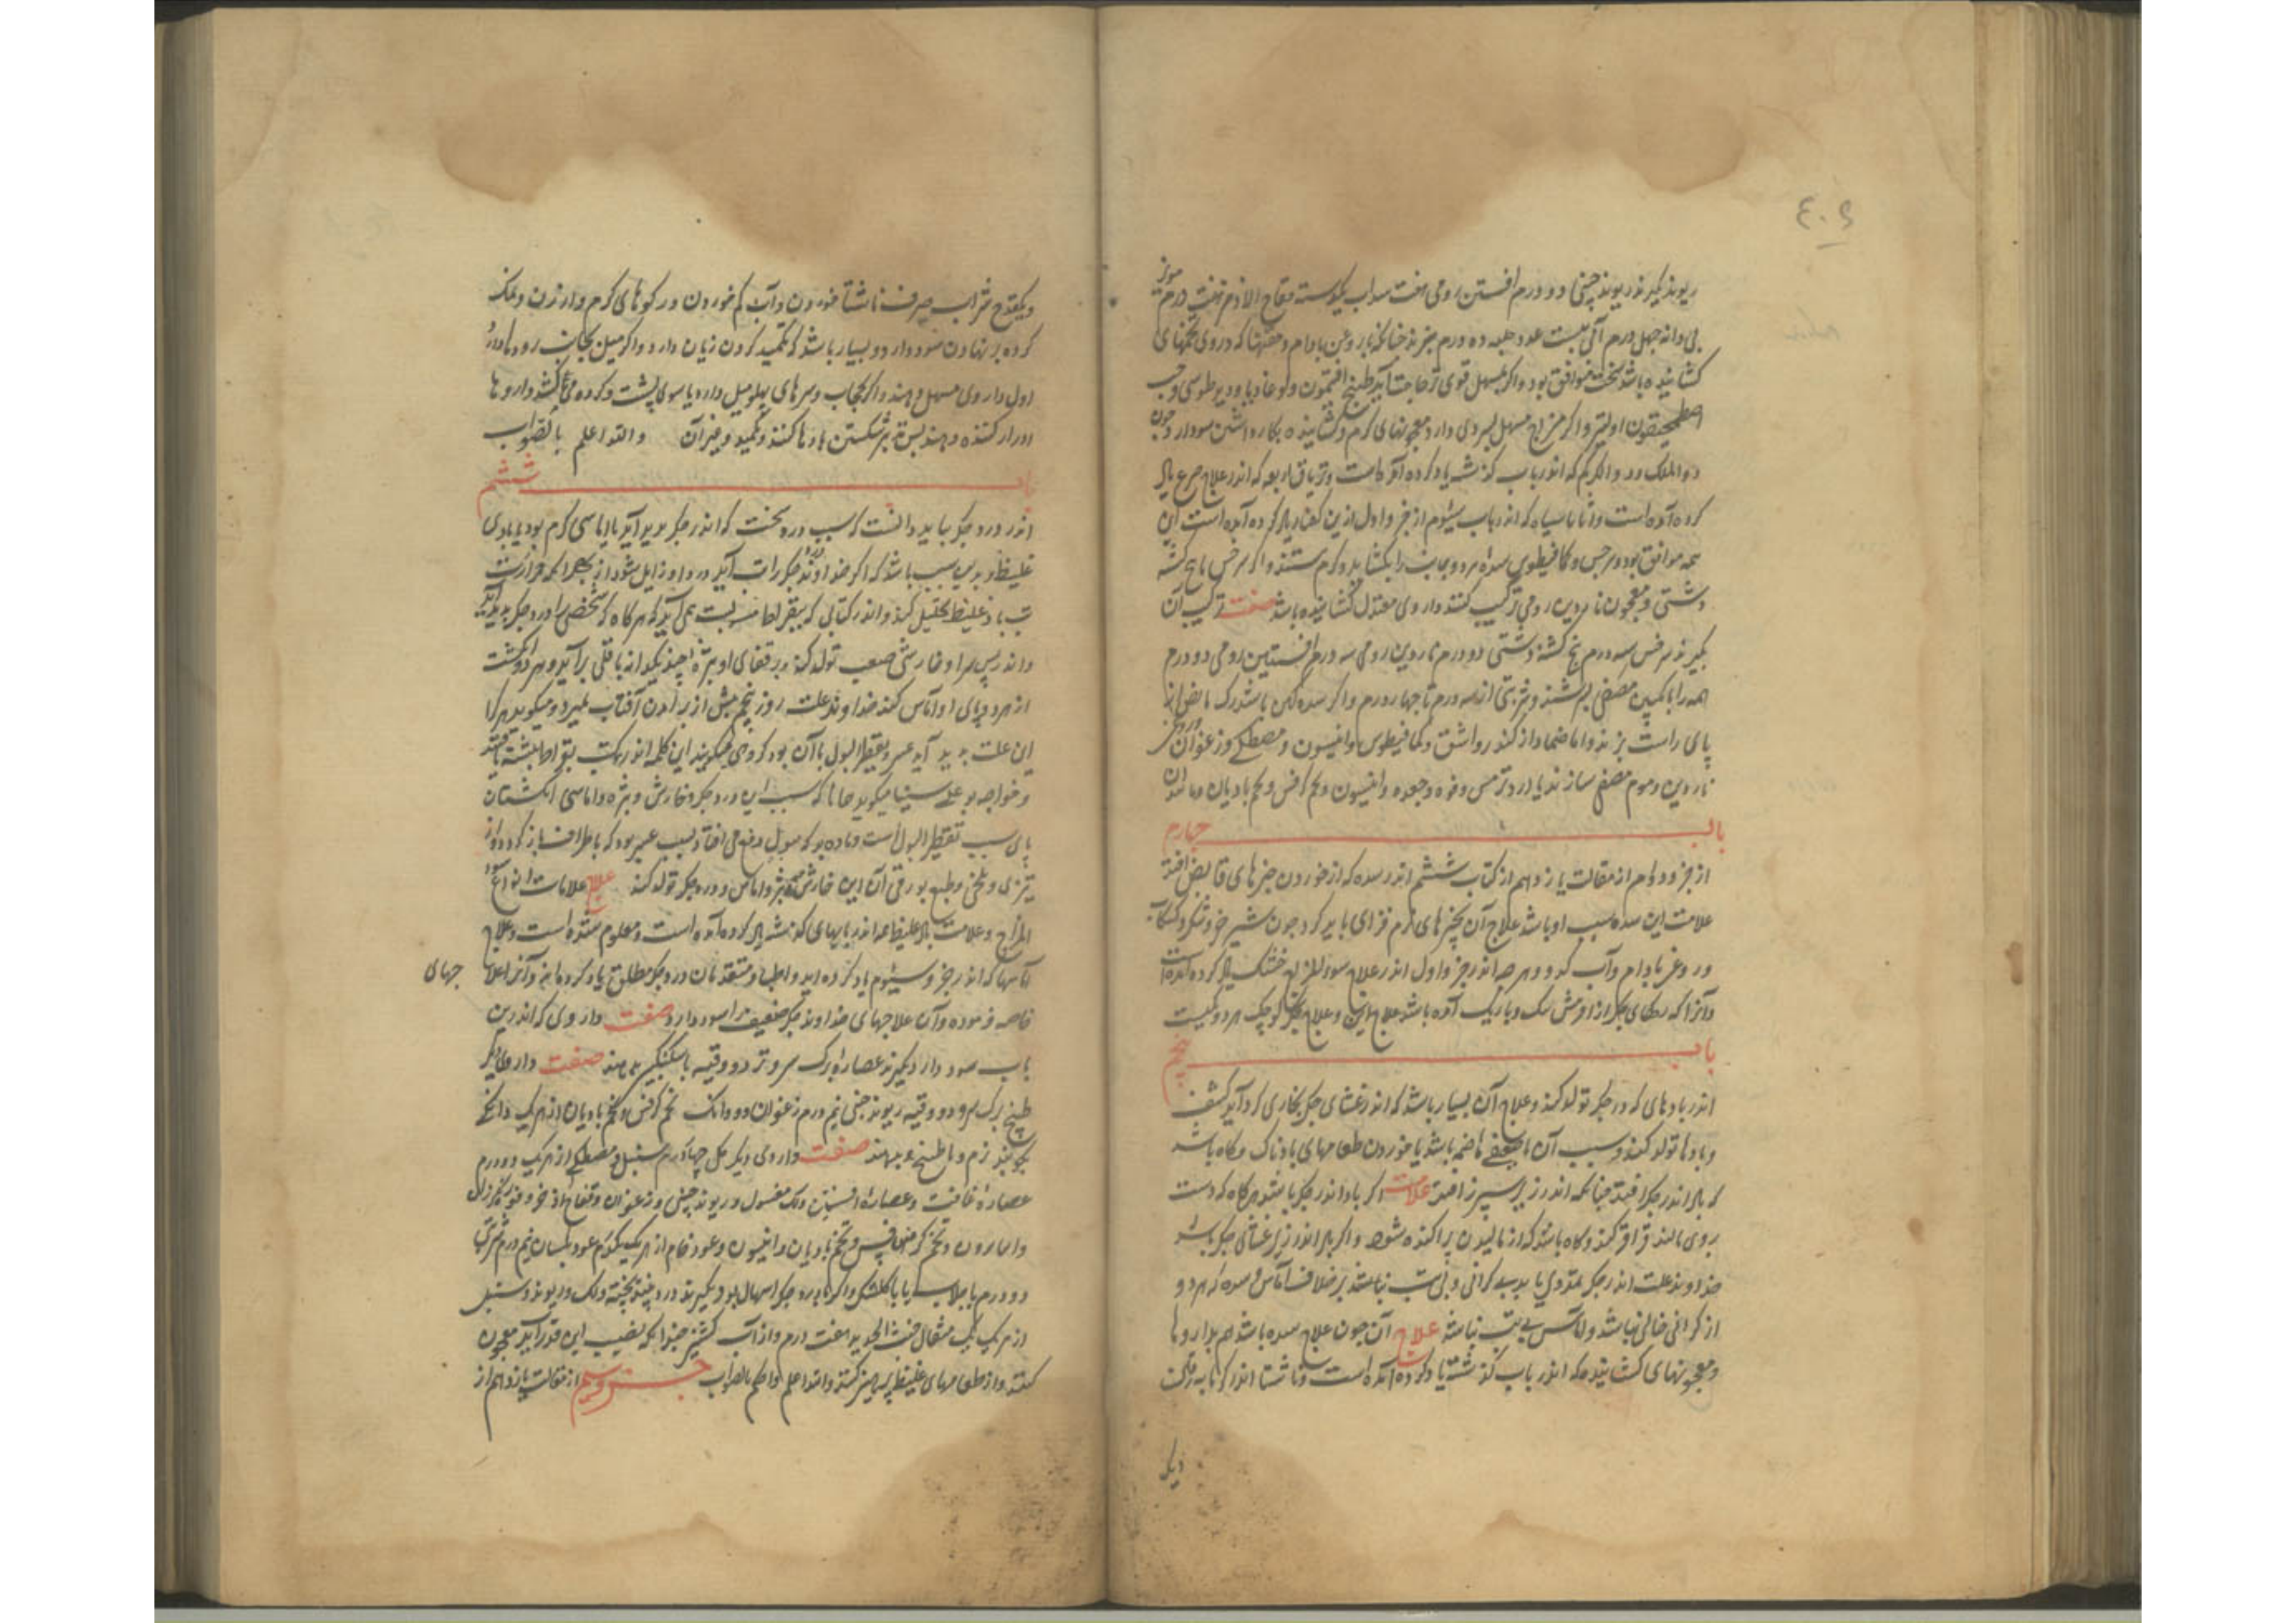 ٤٠٤
ریوند بکیرند ریوند چینی دو درم افسنتین رومی هفت سداب فقاح الاذخر هفت درم مویز
بی دانه چهل درم آلو بیست عدد حلبه ده درم بپزند چنانکه با روغن بادام و حقنها که دروی تخمهای
کشاینده باشد سخت موافق بود و اکر بمسهل قوی تر حاجت آید طبیخ افتیمون و لوغاذیا و دیرطوسی و حب
اصطمحیقون اولیتر و اکر مزاج میل بسردی دارد معجونهای کرم و کشاینده بکار داشتن سود دارد چون
دواء الملک و دواء الکرکم که اندر باب کذشته یاد کرده آمده است و تریاق اربعه که اندر علاج صرع یاد
کرده آمده است و اثاناسیا که اندر باب سیوم از جزو اول ازین کفتار یاد کرده آمده است این
همه موافق بود و سرخس و کمافیطوس سده هر دو جانب را بکشاید و کرم نیستند و اکر سرخس با بیخ کشنه
دشتی و معجون ناردین رومی ترکیب کنند داروی معتدل کشاینده باشد صفت ترکیب آن
بکیرند سرخس سه درم بیخ کشنه دشتی دو درم ناردین رومی سه درم افسنتین رومی دو درم
همه را بانکبین مصفی بسرشند و شربتی از سه درم تا چهار درم و اکر سده کهن باشد رک مابض از
پای راست بزنند و اما ضماد از کندر و اشق و کمافیطوس و انیسون و مصطکی و زعفران و روغن
ناردین و موم مصفی سازند یا از ترمس و فوه و جعده و انیسون و تخم کرفس و تخم بادیان و مانند آن
باب چهارم
از جزو دوم از مقالت یازدهم از کتاب ششم اندر سده که از خوردن چیزهای قابض افتد
علامت این سده سبب او باشد علاج آن بچیزهای نرم فزای باید کرد چون شیر خر و شکر و کشکاب
و روغن بادام و آب کدو و هر چه اندر جزو اول اندر علاج سوء المزاج خشک یاد کرده آمده است
و آنرا که رکهای جکر از آفرینش تنک و باریک آمده باشد علاج این و علاج جکر کوچک هر دو یکیست
باب پنجم
اندر بادهای که در جکر تولد کند و علاج آن بسیار باشد که اندر غشای جکر بخاری کرد آید کشف
و بادها تولد کند و سبب آن یا ضعف هاضمه باشد یا خوردن طعامهای بادناک و کاه باشد
که باد اندر جکر افتد چنانکه اندر زیر سپرز افتد علامت اکر باد اندر جکر باشد هر کاه که دست
بروی مالند قراقر کند و کاه باشد که از مالیدن پراکنده شود و اکر باد اندر زیر غشای جکر باشد
خداوند علت اندر جکر تمددی یابد بی کرانی و بی تب نباشد بر خلاف آماس و سده که هر دو
از کرانی خالی نباشد و آماس بی تب نباشد علاج آن چون علاج سده باشد هم بداروها
و معجونهای کشاینده که اندر باب کذشته یاد کرده آمده است و ناشتا اندر کرمابه رفتن
ویکی
ویکقدح شراب صرف ناشتا خوردن و آب کم خوردن و رکوهای کرم و ارزن و نمک
کرده بر نهادن سود دارد و بسیار باشد که تکمید کردن زیان دارد و اکر میل بجانب رودها دارد
اول داروی مسهل دهند و اکر بحجاب و سرهای پهلو میل دارد یا سوی پشت و کرده می کشد داروها
ادرار کننده دهند پس تدبیر شکستن بادها کنند و تکمید و غیر آن والله اعلم بالصواب
باب ششم
اندر درد جکر بباید دانست که سبب درد سخت که اندر جکر پدید آید یا اماسی کرم بود یا بادی
غلیظ و بدین سبب باشد که اکر خداوند درد جکر را تب آید درد او زایل شود از بهر آنکه حرارت
تب باد غلیظ را تحلیل کند و اندر کتابی که ببقراط منسوبست همی آید که هر کاه که شخصی را درد جکر پدید آید
و اندر پس سر او خارشی صعب تولد کند و بر قفای او بثره چند یکدانه باقلی برآید و هر دو انکشت
از هر دو پای او آماس کند خداوند علت روز پنجم پیش از برآمدن آفتاب بمیرد و میکوید هر که را
این علت پدید آید عسر و تقطیر البول با آن بود کروهی میکویند این کلمه اندر کتب بقراط نبشته یافتند
و خواجه بو علی سینا میکوید همانا که سبب این درد جکر و خارش و بثره و اماسی انکشتان
پای سبب تقطیر البول است و ماده بد که ببول دفع می افتاد بسبب عسر بود که باطراف باز کردد و از
تیزی و تلخی و طبع بورقی آن این خارش و بثره و اماس و درد جکر تولد کند علاج علامات انواع سوء
المزاج و علامت باد غلیظ همه اندر بابهای کذشته یاد کرده آمده است و معلوم شده است و علاج
آماسها که اندر جزو سیوم یاد کرده اید و اطباء متقدمان درد جکر مطلق یاد کرده اند و آنرا علا جهای
خاصه فرموده و آن علاجهای خداوند جکر ضعیف را سود دارد صفت داروی که اندرین
باب سود دارد بکیرند عصاره برک سرو تر دو وقیه با سکنکبین بدهند صفت داروی دیکر
طبیخ برک سرو دو وقیه ریوند چینی نیم درم زعفران دو دانک تخم کرفس و تخم بادیان از هر یک دانکی
بکوبند نرم و با طبیخ بدهند صفت داروی دیکر کل چهار درم سنبل و مصطکی از هر یک دو درم
عصاره غافت و عصاره افسنتین و لک مغسول و ریوند چینی و زعفران و فقاح اذخر و فوه
و اسارون و تخم کرفس و تخم بادیان و انیسون و عود خام از هر یک یکدرم عود بلسان نیم درم شربتی
دو درم با جلاب یا با کلشکر و اکر با درد جکر اسهال بود بکیرند پخته و لک و ریوند و سنبل
از هر یک یک مثقال خبث الحدید هفت درم و از آب کشنیز چندانکه بدین قدر آید معجون
کنند و از طعامهای غلیظ پرهیز کنند والله اعلم و احکم بالصواب جزو سیم از مقالت یازدهم از